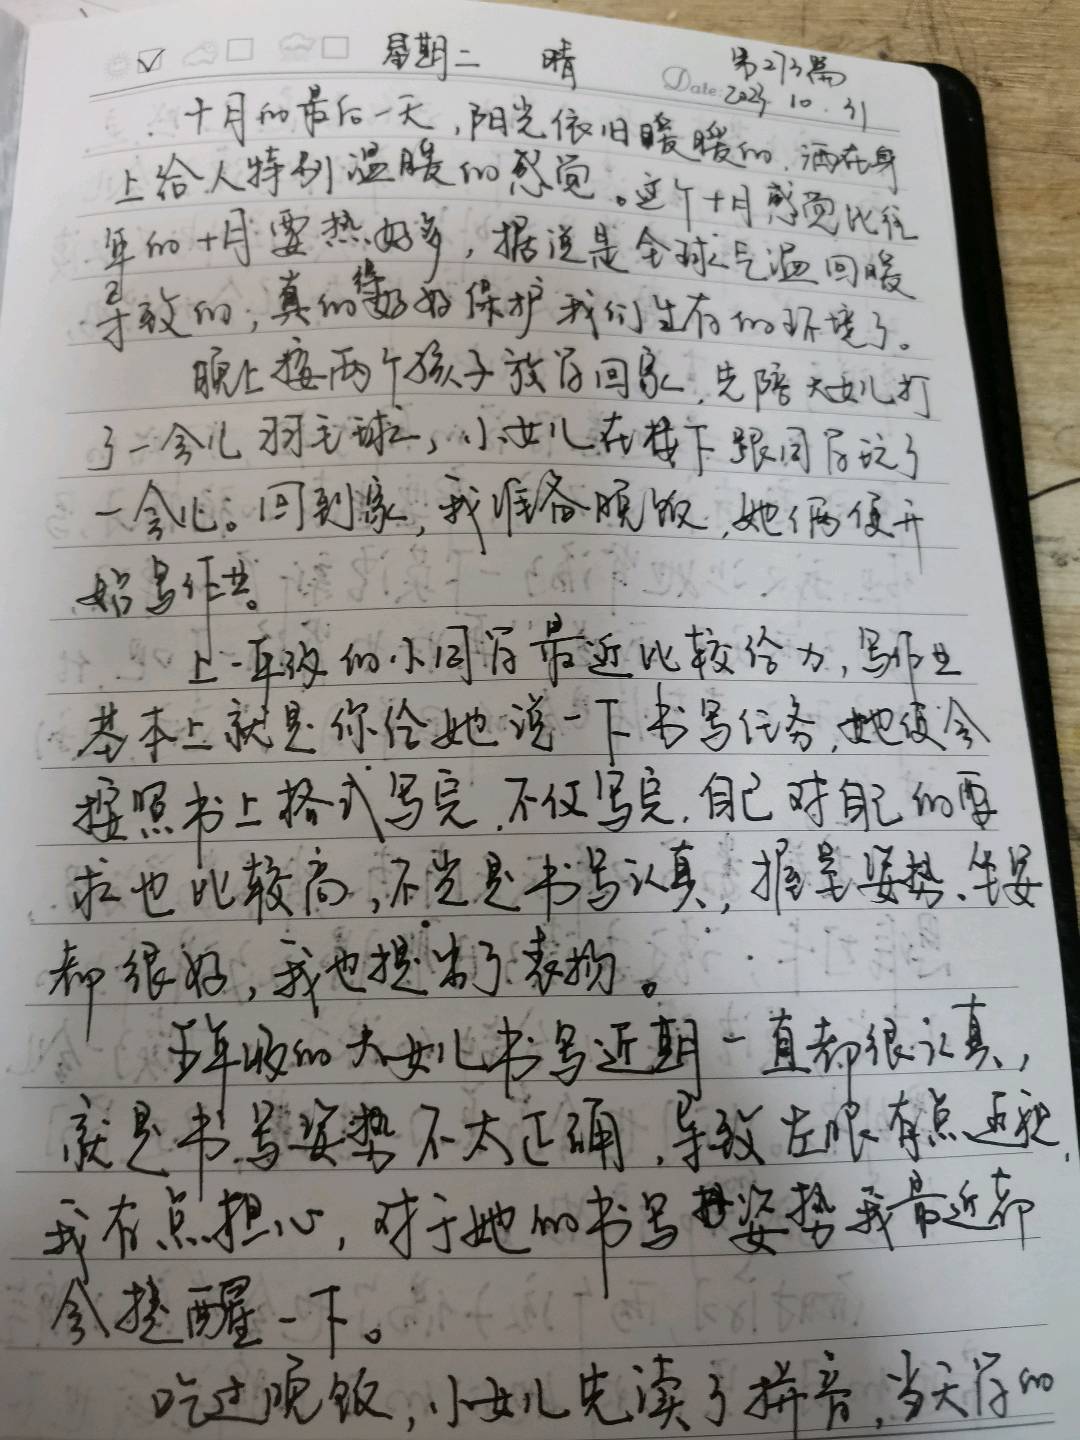 星期二 晴 第273篇
Date: 2023.10.31
十月的最后一天,阳光依旧暖暖的,洒在身
上给人特别温暖的感觉。这个十月感觉比往
年的十月要热好多,据说是全球气温回暖
导致的,真的得好好保护我们生存的环境了。
晚上接两个孩子放学回家,先陪大女儿打
了一会儿羽毛球,小女儿在楼下跟同学玩了
一会儿。回到家,我准备晚饭,她俩便开
始写作业。
上一年级的小同学最近比较给力,写作业
基本上就是你给她说一下书写任务,她便会
按照书上格式写完,不仅写完,自己对自己的要
求也比较高,不光是书写认真,握笔姿势、坐姿
都很好,我也提出了表扬。
五年级的大女儿书写近期一直都很认真,
就是书写姿势不太正确,导致左眼有点近视,
我有点担心,对于她的书写姿势我最近都
会提醒一下。
吃过晚饭,小女儿先读了拼音,当天学的